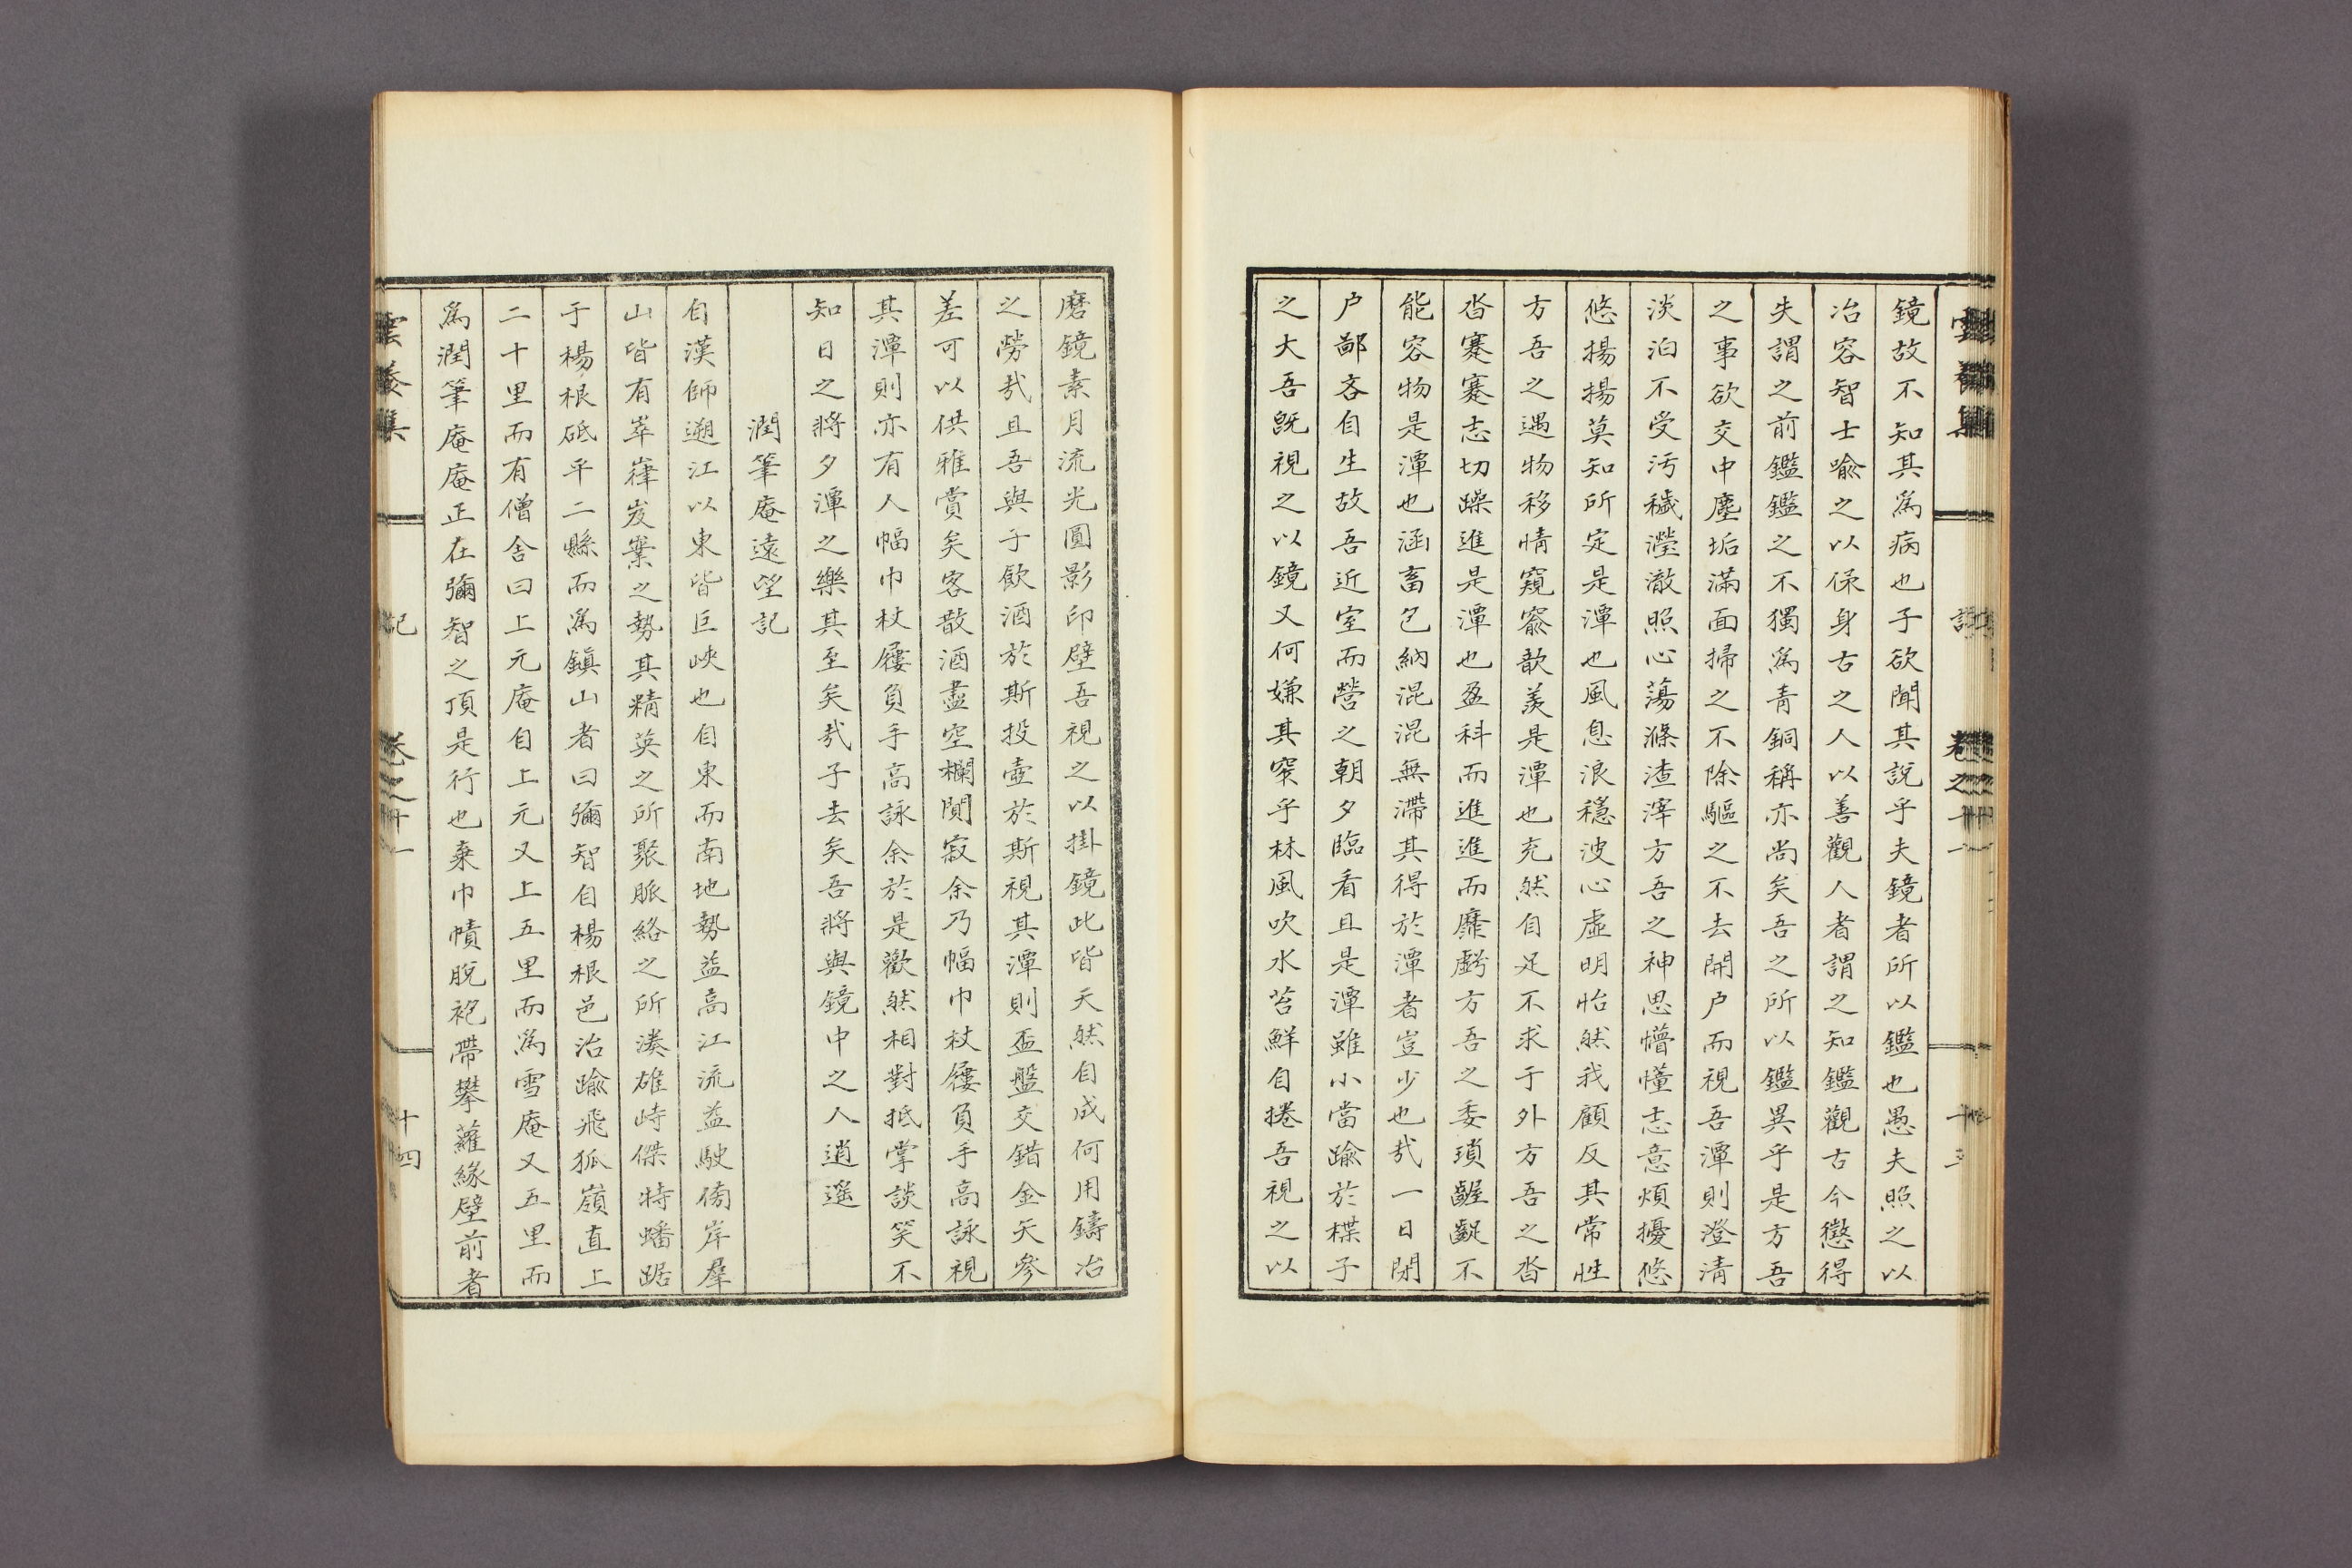 鏡故不知其爲病也子欲聞其說乎夫鏡者所以鑑也愚夫照之以
冶容智士喩之以保身古之人以善觀人者謂之知鑑觀古今懲得
失謂之前鑑鑑之不獨爲靑銅稱亦尚矣吾之所以鑑異乎是方吾
之事欲交中塵垢滿面掃之不除驅之不去開户而視吾潭則澄淸
淡泊不受汚穢瀅澈照心蕩滌渣滓方吾之神思懵懂志意煩擾悠
悠揚揚莫知所定是潭也風息浪穩波心虛明怡然我顧反其常性
方吾之遇物移情窺窬歆羨是潭也充然自足不求于外方吾之沓
沓蹇蹇志切躁進是潭也盈科而進進而靡虧方吾之委瑣齷齪不
能容物是潭也涵畜包納混混無滯其得於潭者豈少也㢤一日閉
户鄙吝自生故吾近室而營之朝夕臨看且是潭雖小當踰於楪子
之大吾旣視之以鏡又何嫌其窄乎林風吹水苔鮮自捲吾視之以
磨鏡素月流光圓影印壁吾視之以掛鏡此皆天然自成何用鑄冶
之勞㢤且吾與子飮酒於斯投壺於斯視其潭則盃盤交錯金矢參
差可以供雅賞矣客散酒盡空欄閴寂余乃幅巾杖屨負手高詠視
其潭則亦有人幅巾杖屨負手高詠余於是歡然相對抵掌談笑不
知日之將夕潭之樂其至矣㢤子去矣吾將與鏡中之人逍遥
潤筆庵遠望記
自漢師遡江以東皆巨峽也自東而南地勢益高江流益駛傍岸羣
山皆有崒嵂岌嶪之勢其精英之所聚脈絡之所湊雄峙傑特蟠踞
于楊根砥平二縣而爲鎭山者曰彌智自楊根邑治踰飛狐嶺直上
二十里而有僧舍曰上元庵自上元又上五里而爲雪庵又五里而
爲潤筆庵庵正在彌智之頂是行也棄巾幘脫袍帶攀蘿緣壁前者
記
卷之十一
十四